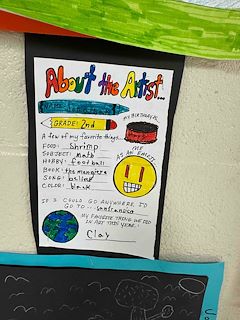 About the Artist...
NAME:
MY BIRTHDAY IS..
GRADE: 2nd
A few of my favorite things...
ME
AS AN EMOJI
FOOD: Shrimp
SUBJECT: Math
HOBBY: football
BOOK: the
SONG:
COLOR: black
IF I COULD GO ANYWHERE I'D
GO TO
MY FAVORITE THING WE DID
IN ART THIS YEAR:
Clay